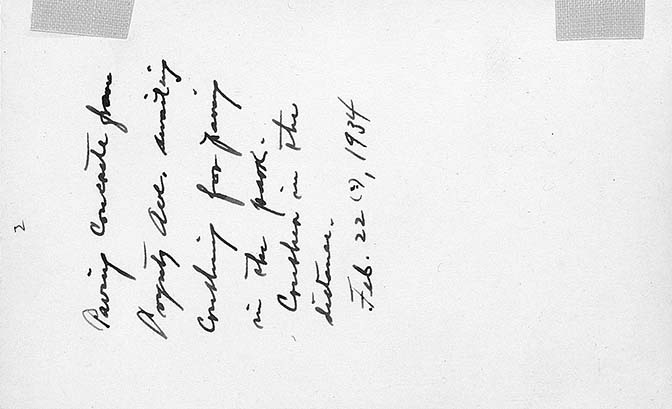 Paving Concrete from
Ave. awaiting
Crushing for paving
in the park.
Crusher in the
distance.
Feb. 22 (?), 1934
2